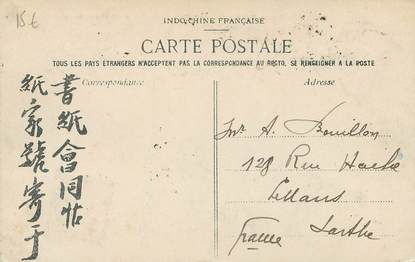 15€
INDO-CHINE FRANÇAISE
CARTE POSTALE
TOUS LES PAYS ETRANGERS N'ACCEPTENT PAS LA CORRESPONDANCE AU RECTO, SE RENSEIGNER A LA POSTE
Correspondance
Adresse
書紙會同帖
紙家號寄于
A. Bouillon
128 Rue
France Sarthe